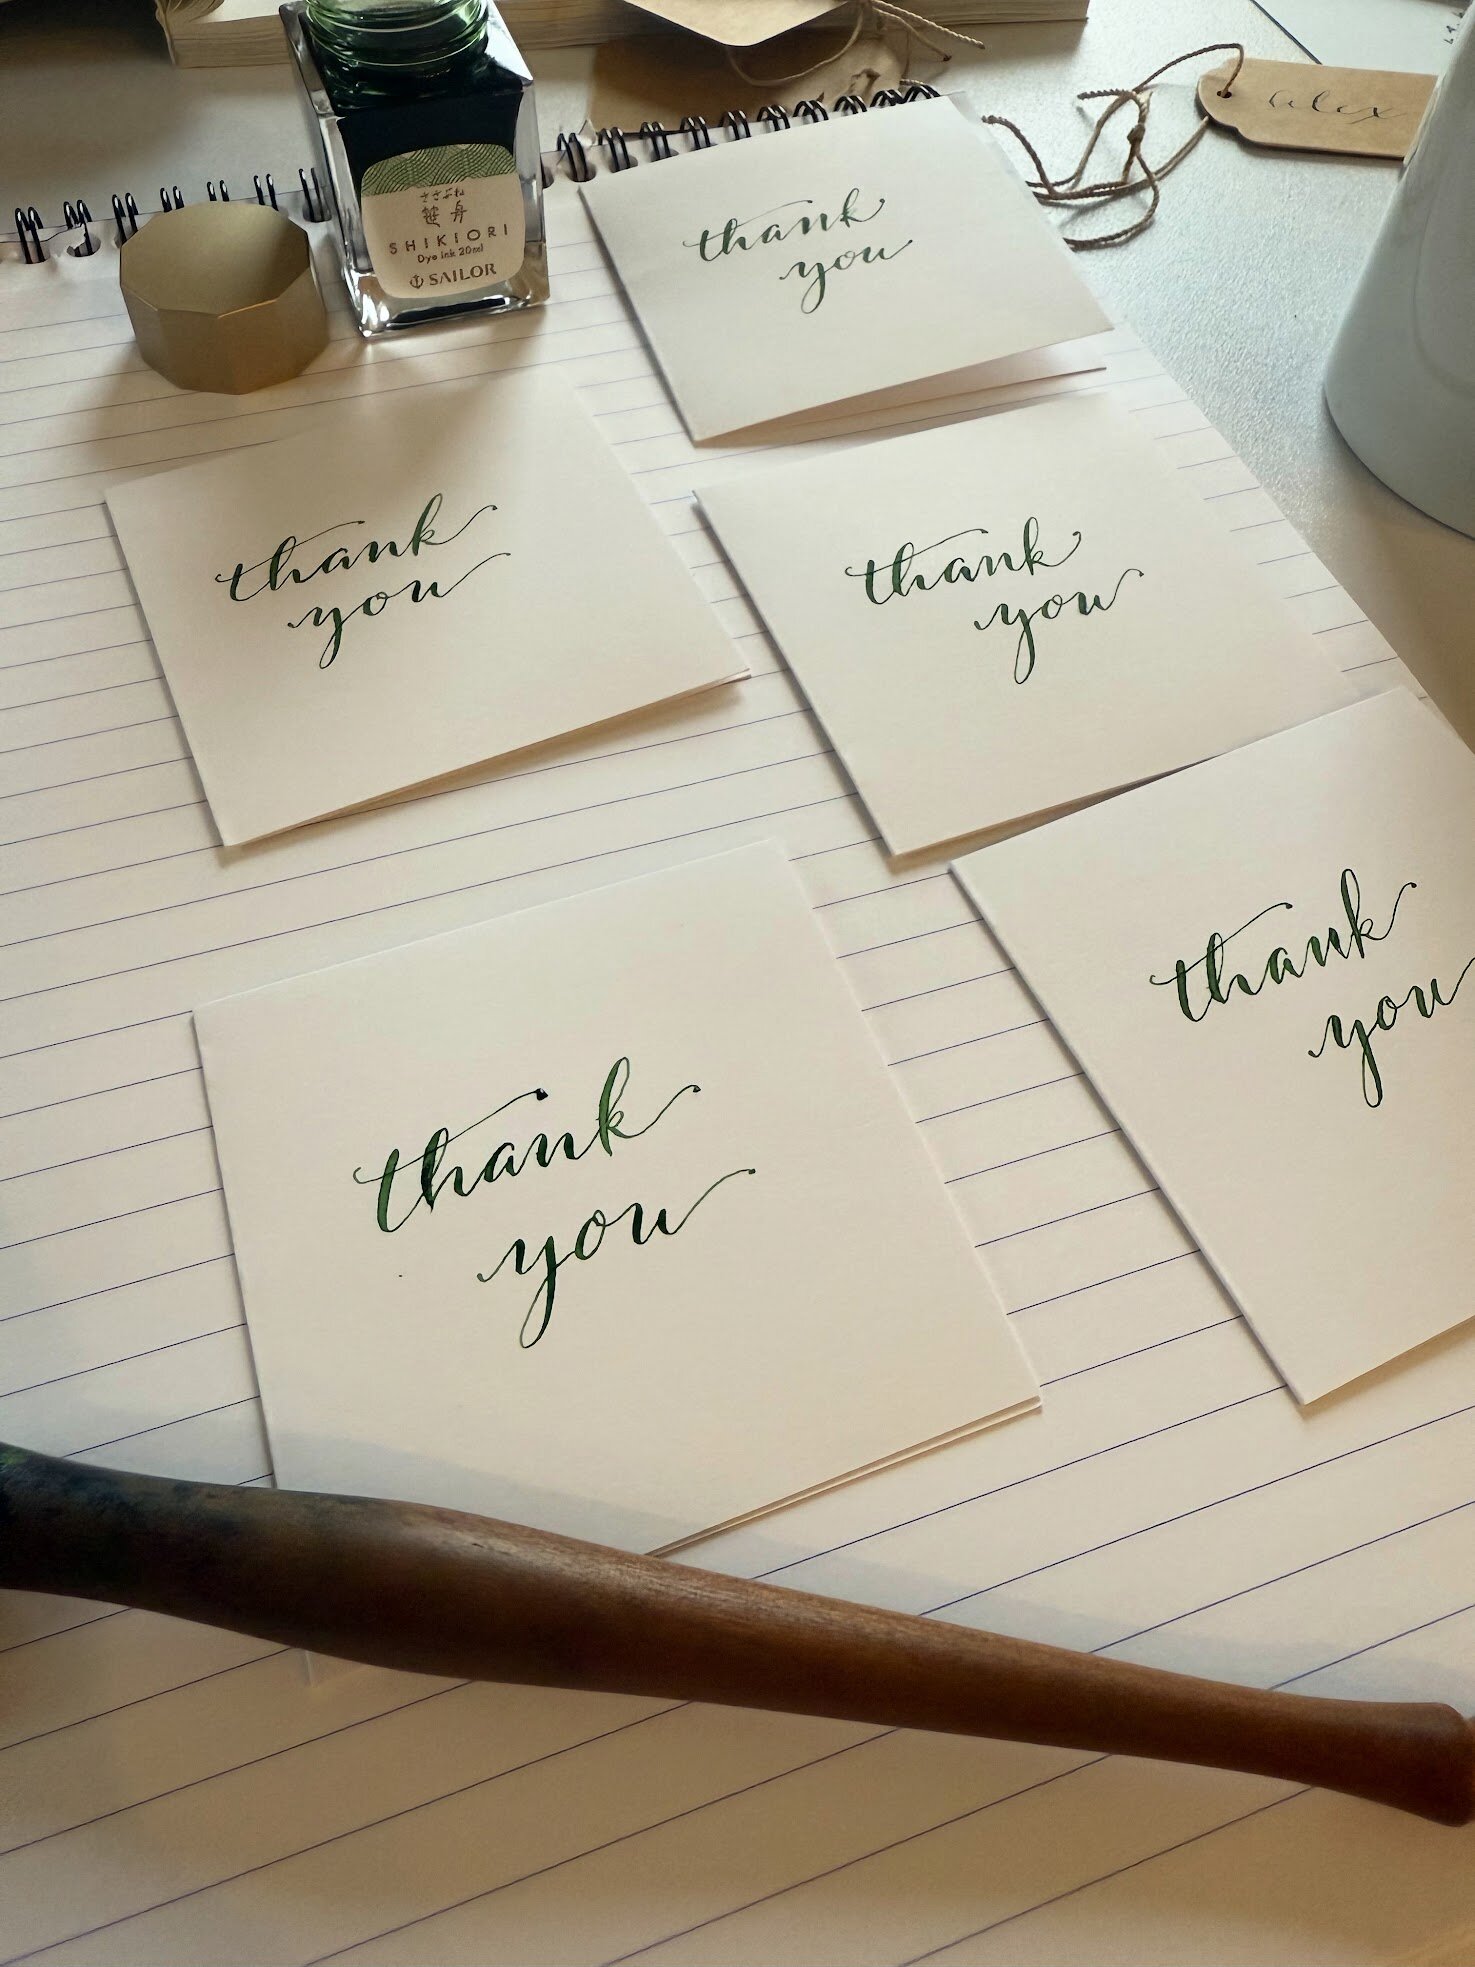 ささぶね
SHIKIORI
Dye Ink 20ml
SAILOR
alex
thank
you
thank
you
thank
you
thank
you
thank
you